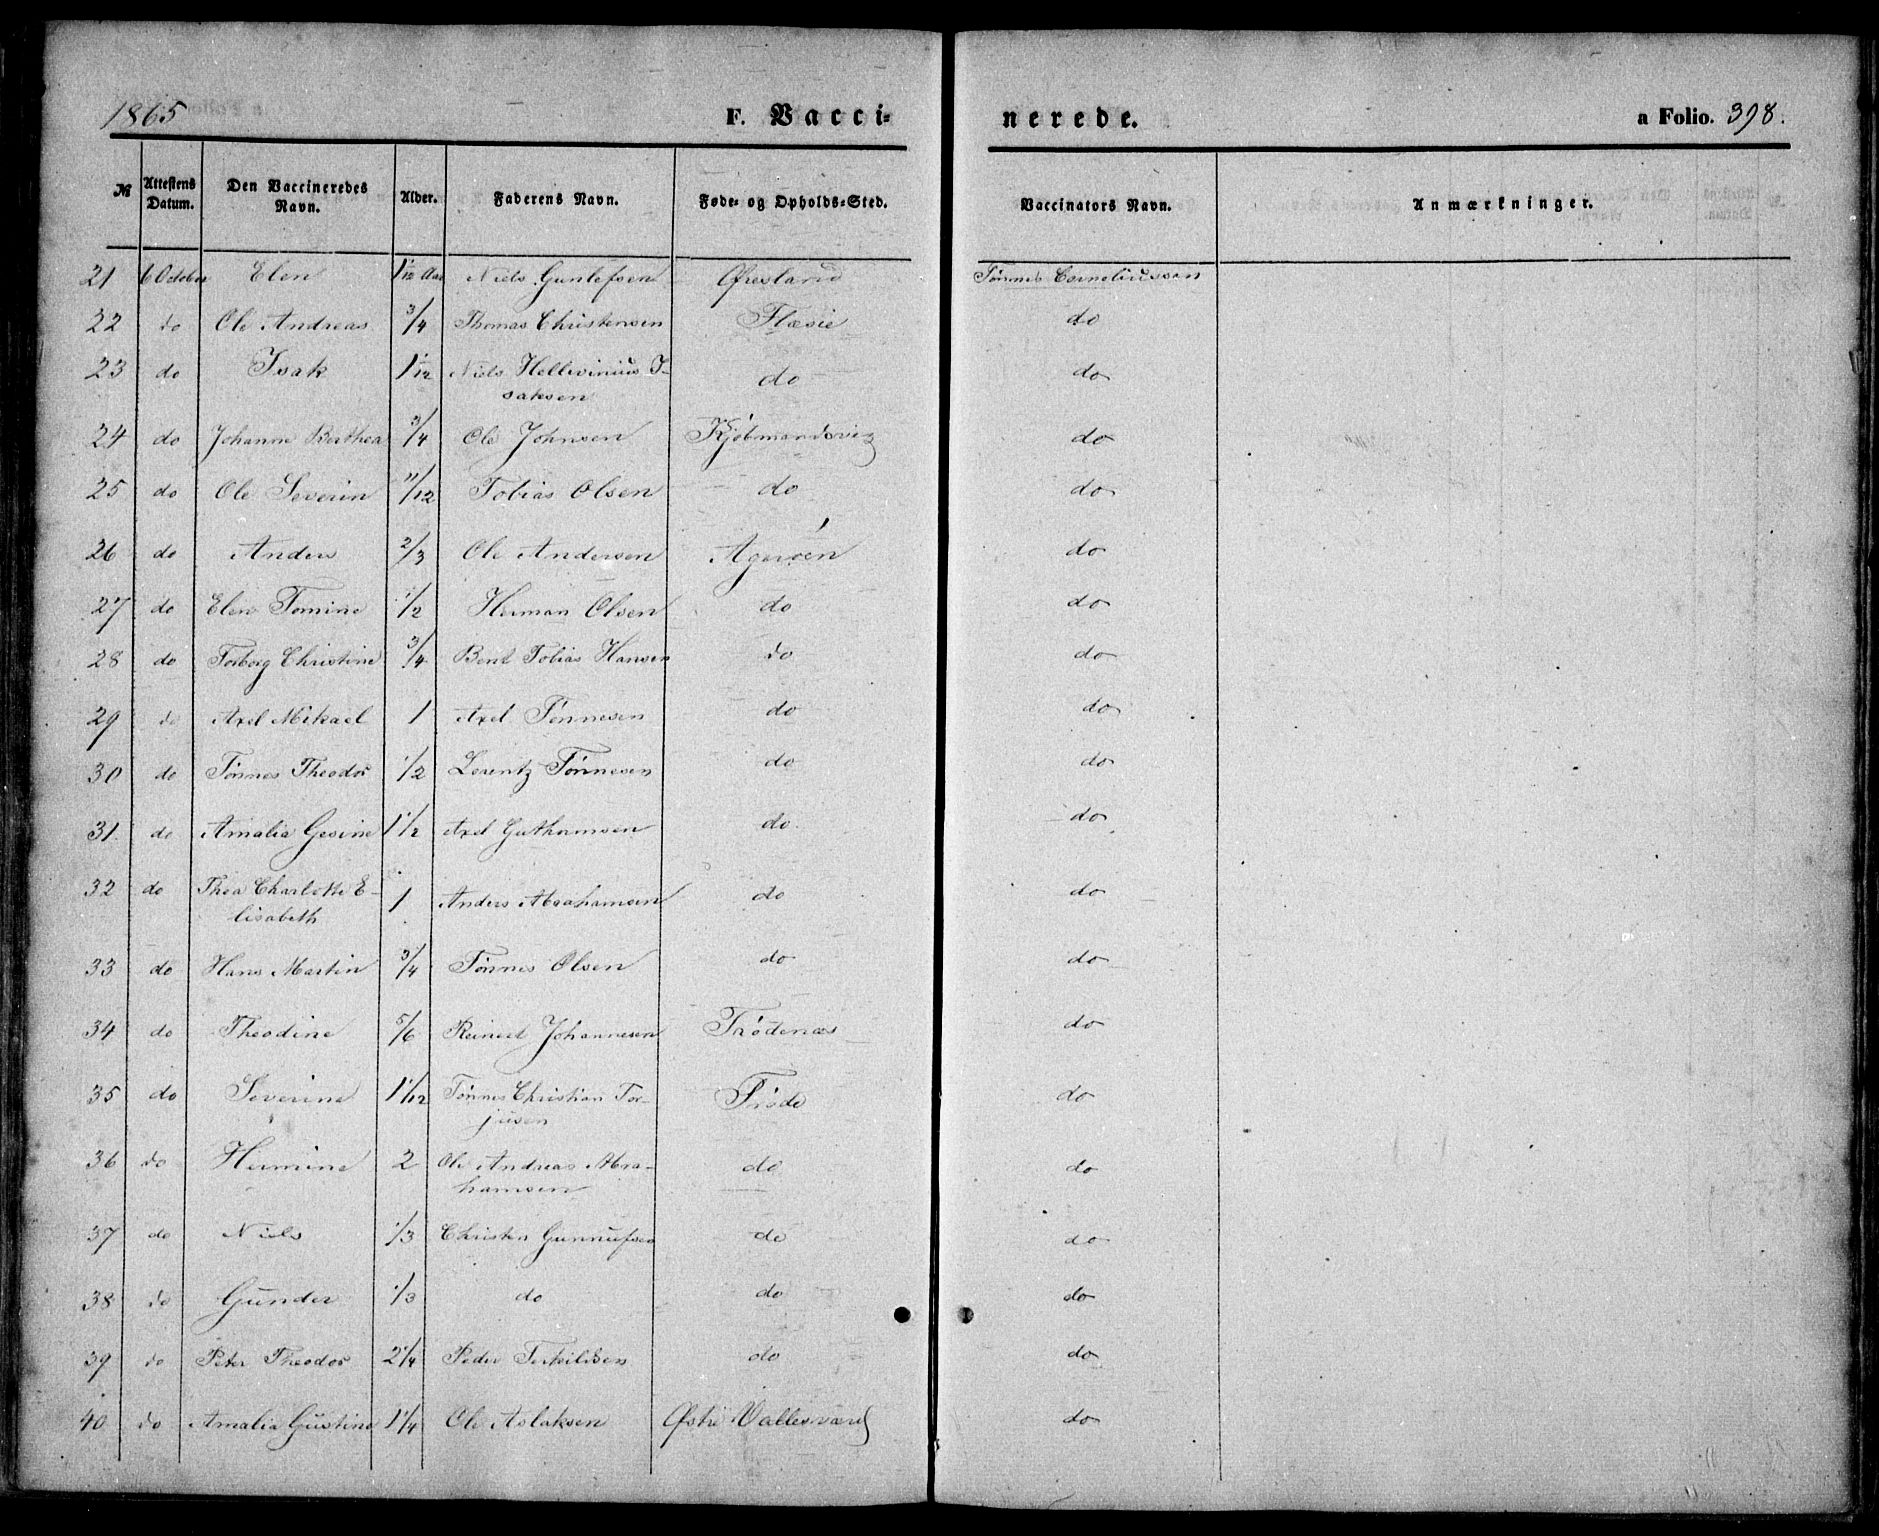 1865 F. Vacci= nerede. a Folio. 398.
№ Attestens Datum. Den Vaccineredes Navn. Alder. Faderens Navn. Føde- og Opholds-Sted. Vaccinators Navn. Anmærkninger.
21 6 October Elen 1 1/12 Aar Niels Gunlefsen Øresland Tønnes Corneliussen
22 do Ole Andreas 3/4 Thomas Christensen Flæsie do
23 do Isak 1 1/12 Niels Hellevinius I- do do
saksen
24 do Johanne Berthea 3/4 Ole Johnsen Kjøbmandsvig do
25 do Ole Severin 11/12 Tobias Olsen do do
26 do Anders 2/3 Ole Andersen Agerøen do
27 do Elen Tomine 1/2 Herman Olsen do do
28 do Torborg Christine 3/4 Bent Tobias Hansen do do
29 do Axel Mikael 1 Axel Tønnesen do do
30 do Tønnes Theodor 1/2 Lorentz Tønnesen do do
31. do Amalia Gesine 1 1/2 Axel Guthormsen do. do
32 do Thea Charlotte E- 1 Anders Abrahamsen do do
lisabeth
33 do Hans Martin 3/4 Tønnes Olsen do do
34 do Theodine 5/6 Reinert Johannesen Trødenæs do
35 do Severine 1 1/12 Tønnes Christian Tor- Trøde do
jusen
36 do Hermine 2 Ole Andreas Abra- do do
hamsen
37 do Niels 1/3 Christen Gunnufsen do do
38 do Gunder 1/3 do do do
39 do Peter Theodor 2 1/4 Peder Terkildsen do do
40 do Amalia Gustine 1 1/4 Ole Aslaksen Østre Vallesværd do